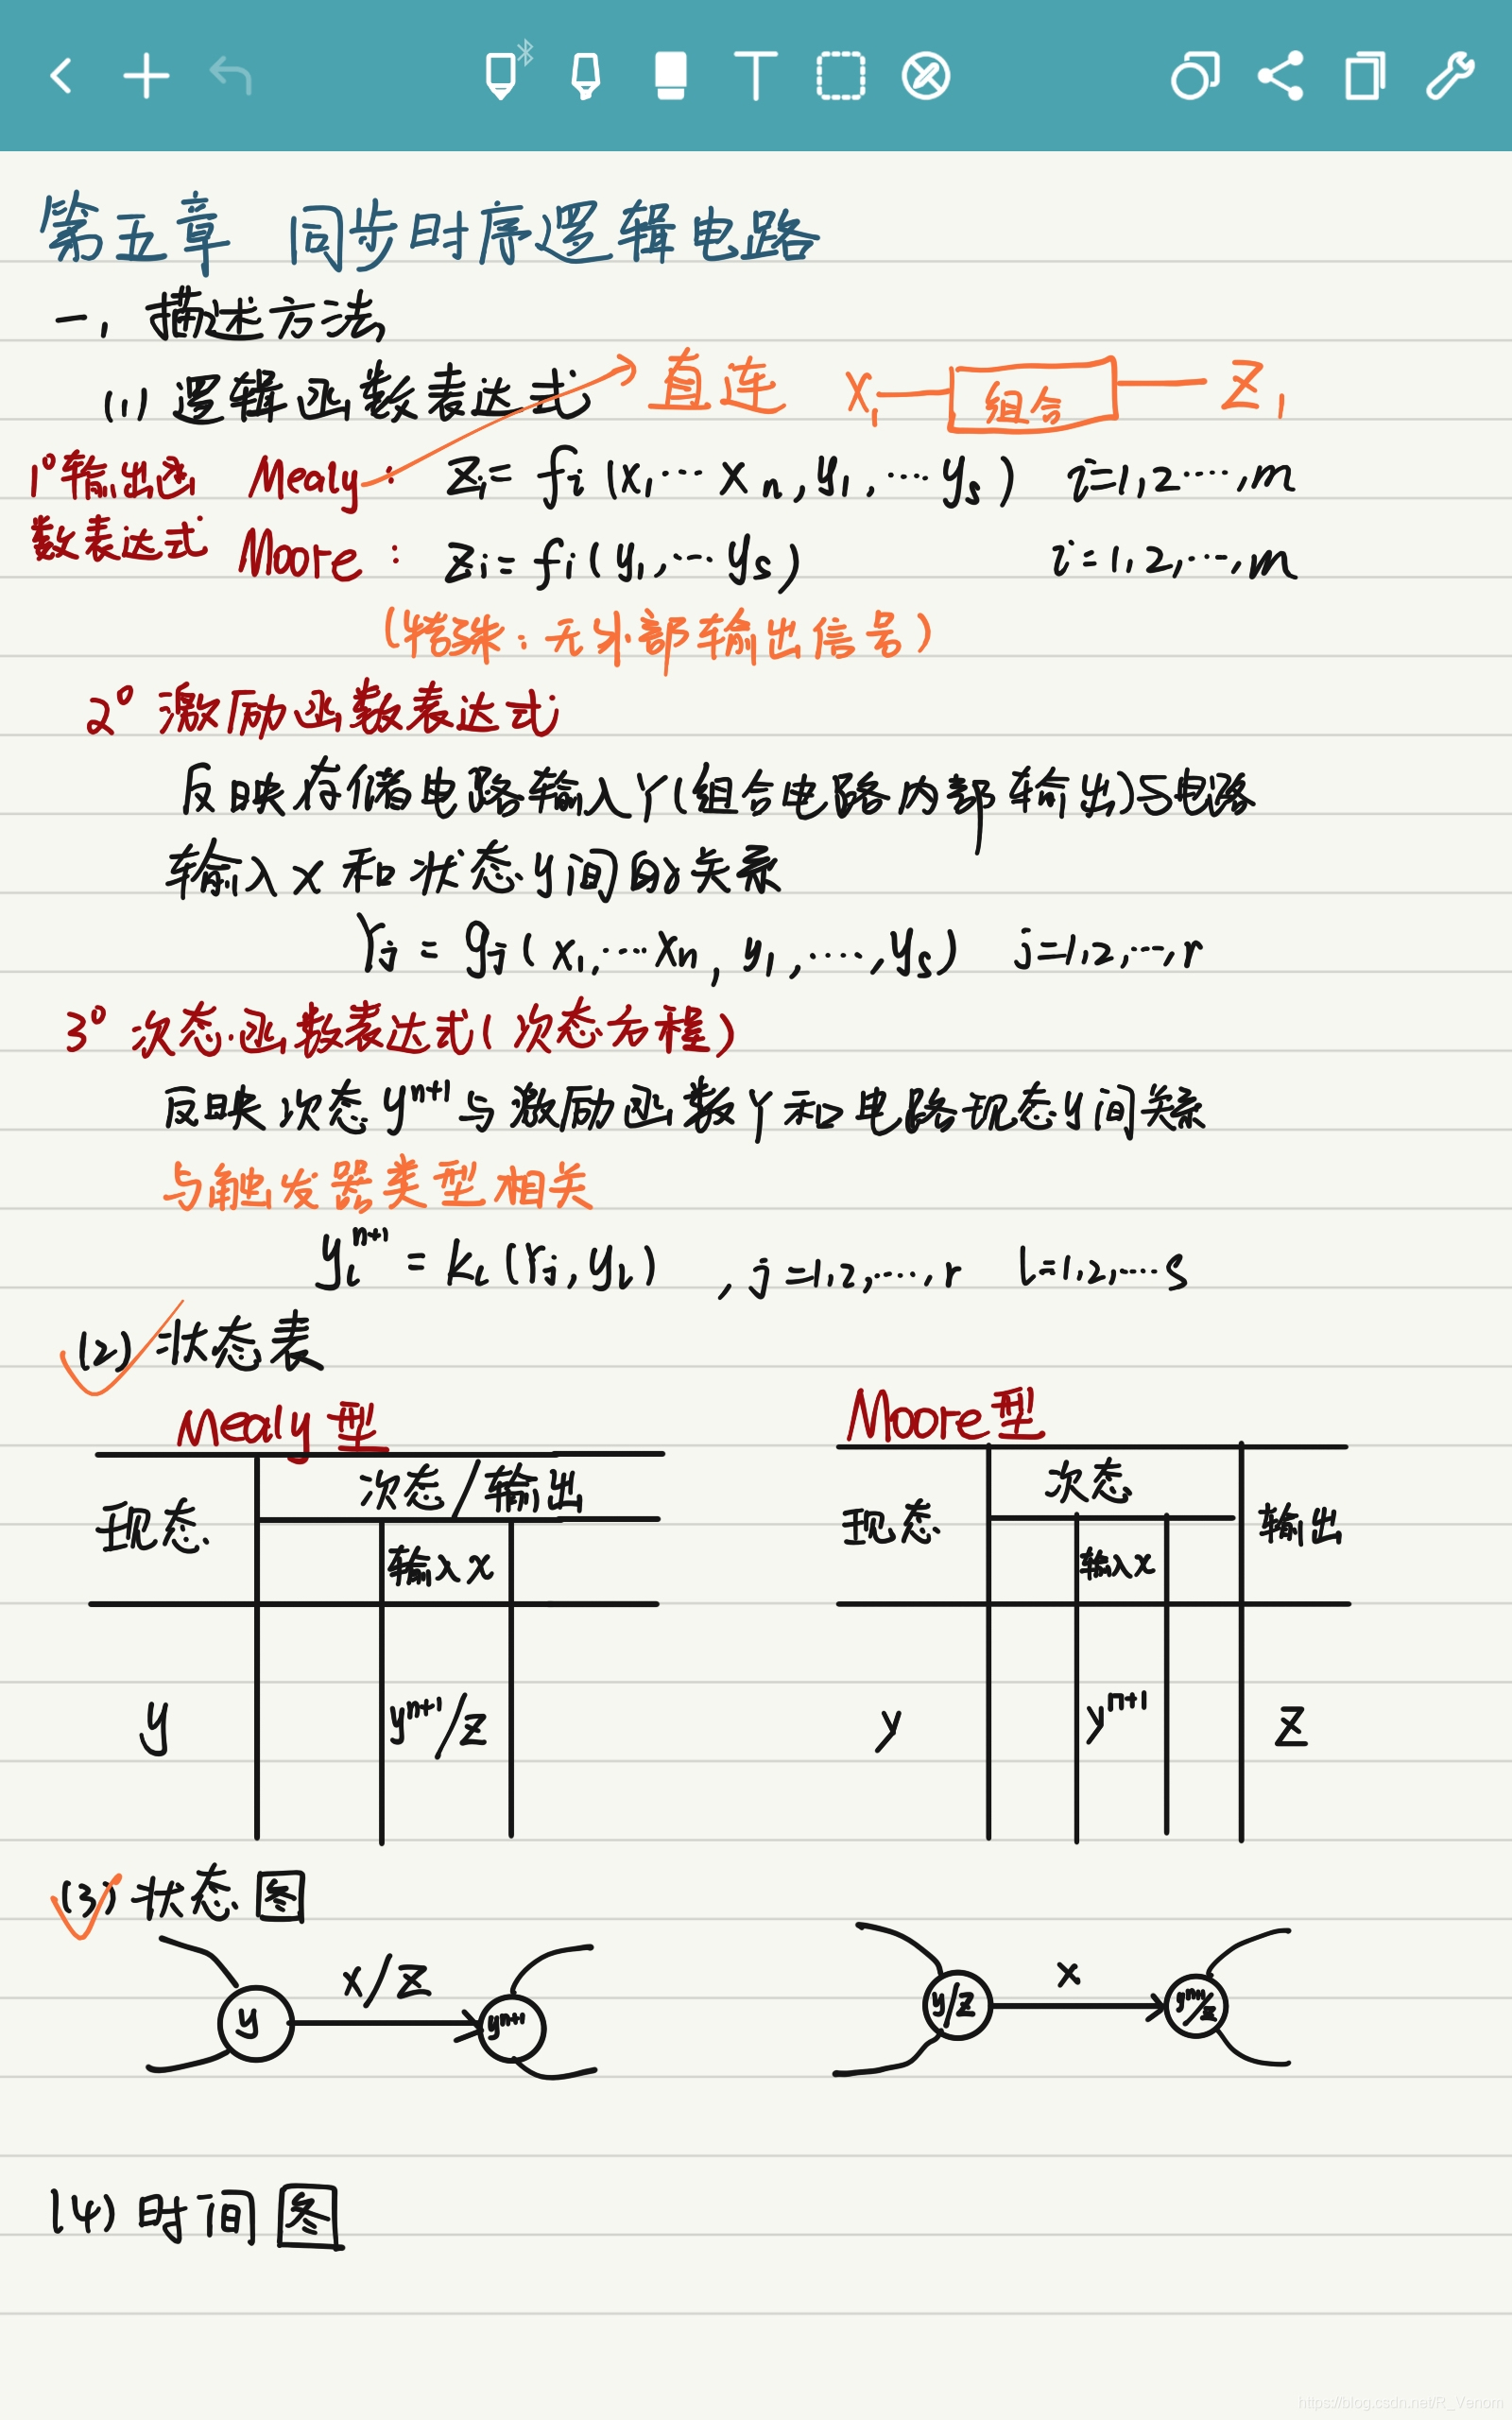 第五章 同步时序逻辑电路
一, 描述方法
(1) 逻辑函数表达式 直连 X1 组合 Z1
1° 输出函数表达式
Mealy: Zi = fi (x1…xn, y1, …ys) i=1,2…,m
Moore: Zi = fi (y1, …ys) i=1,2,…,m
(特殊:无外部输出信号)
2° 激励函数表达式
反映存储电路输入Y(组合电路内部输出)与电路
输入x和状态y间的关系
Yj = gj (x1,…xn, y1, …, ys) j=1,2,…,r
3° 次态函数表达式(次态方程)
反映次态y^n+1与激励函数Y和电路现态y间关系
与触发器类型相关
yl^n+1 = kl (Yj, yl) , j=1,2,…,r l=1,2,…s
(2) 状态表
Mealy型
现态 次态/输出
输入x
y y^n+1/Z
Moore型
现态 次态 输出
输入x
y y^n+1 Z
(3) 状态图
y x/Z y^n+1
y/Z x y^n+1/Z
(4) 时间图
https://blog.csdn.net/R_Venom